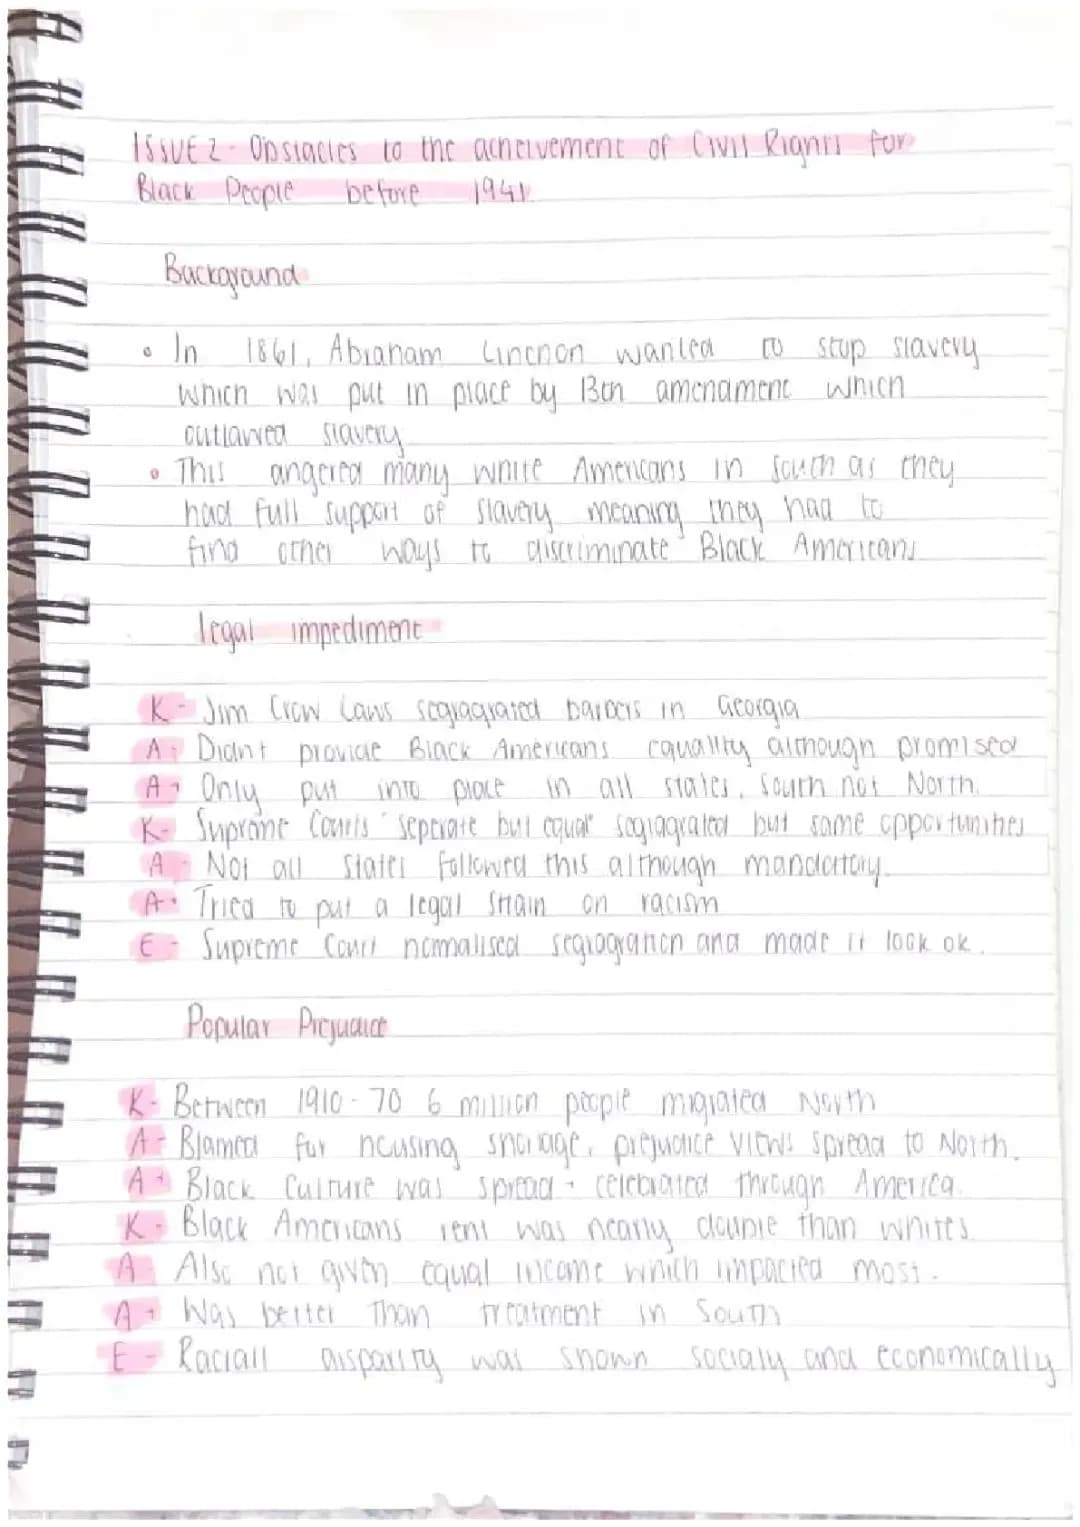 ISSUE 2 - Obstacles to the acheivement of Civil Rights for
Black People before 1941
Background
• In 1861, Abraham Linchon wanted to stop slavery
which was put in place by 13th amendment which
outlawed slavery
• This angered many white Americans in south as they
had full support of slavery meaning they had to
find other ways to discriminate Black Americans
legal impediment
K - Jim Crow Laws segragrated barbers in Georgia
A - Didn't provide Black Americans equality although promised
A + Only put into place in all states, South not North.
K - Suprême Courts 'seperate but equal' sogragrated but same opportunities
A - Not all states followed this although mandartory.
A + Tried to put a legal strain on racism
E - Supreme Court normalised segragration and made it look ok.
Popular Prejudice
K - Between 1910-70 6 million people migrated North
A - Blamed for housing shortage, prejudice views spread to North.
A + Black Culture was spread + celebrated through America.
K - Black Americans rent was nearly double than whites
A - Also not given equal income which impacted most.
A + Was better than treatment in South
E - Raciall disparity was shown socialy and economically